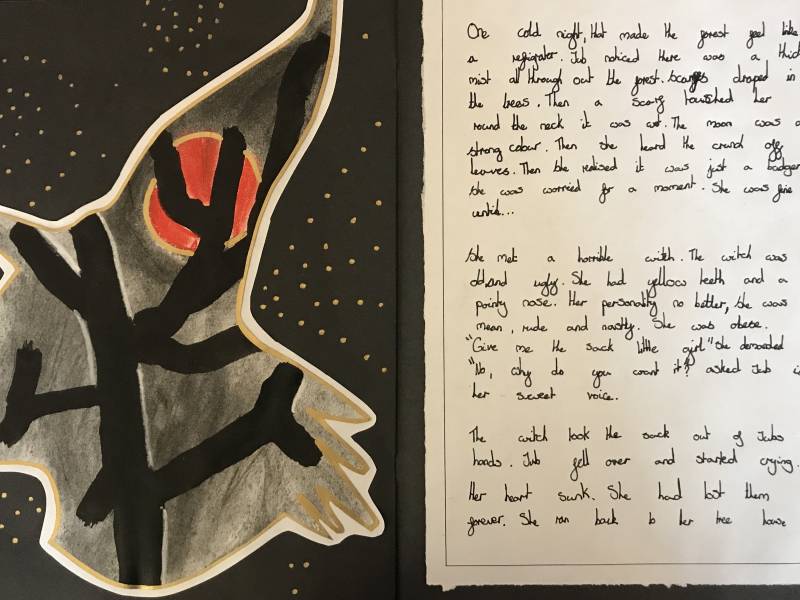 One cold night, that made the forest feel like
a refrigirater. Jub noticed there was a thick
mist all through out the forest. Scarfs draped in
the trees. Then a scarf touched her
round the neck it was wet. The moon was a
strong colour. Then she heard the crund off
leaves. Then She realised it was just a badger
She was worried for a moment. She was fine
until...
She met a horrible witch. The witch was
old and ugly. She had yellow teeth and a
pointy nose. Her personality no better, She was
mean, rude and nastly. She was obese.
"Give me the sack little girl" She demanded
"No, why do you want it? asked Jub in
her sweet voice.
The witch took the sack out of Jubs
hands. Jub fell over and started crying.
Her heart sunk. She had lost them
forever. She ran back to her tree house